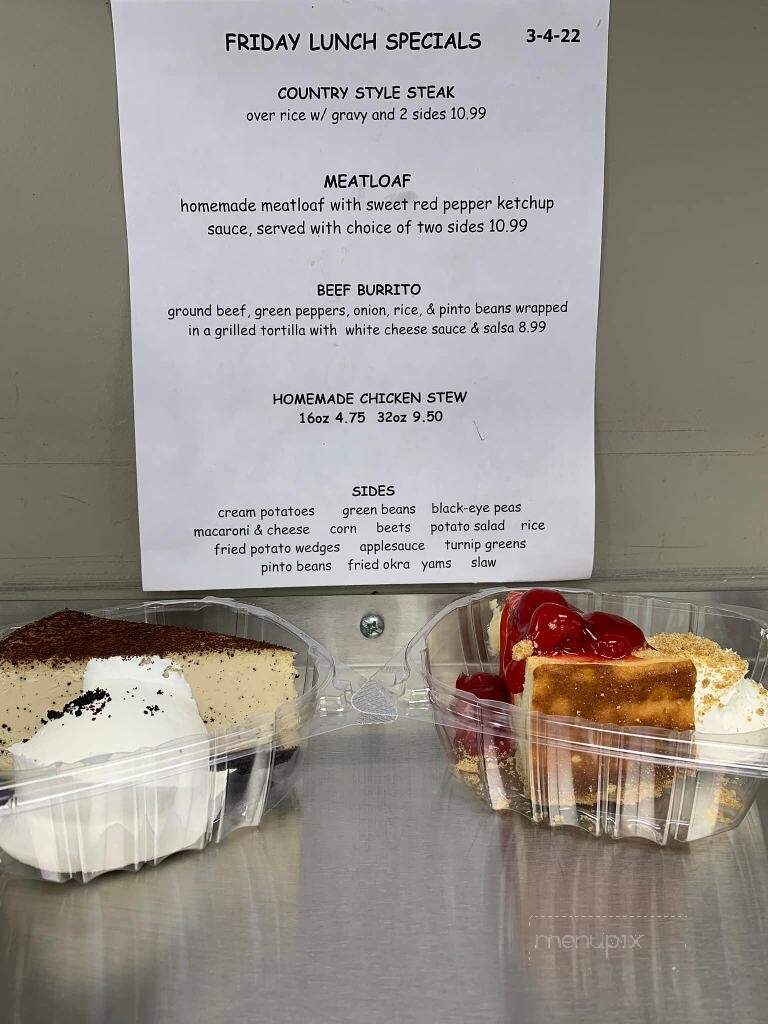 FRIDAY LUNCH SPECIALS 3-4-22
COUNTRY STYLE STEAK
over rice w/ gravy and 2 sides 10.99
MEATLOAF
homemade meatloaf with sweet red pepper ketchup
sauce, served with choice of two sides 10.99
BEEF BURRITO
ground beef, green peppers, onion, rice, & pinto beans wrapped
in a grilled tortilla with white cheese sauce & salsa 8.99
HOMEMADE CHICKEN STEW
16oz 4.75 32oz 9.50
SIDES
cream potatoes green beans black-eye peas
macaroni & cheese corn beets potato salad rice
fried potato wedges applesauce turnip greens
pinto beans fried okra yams slaw
menupix